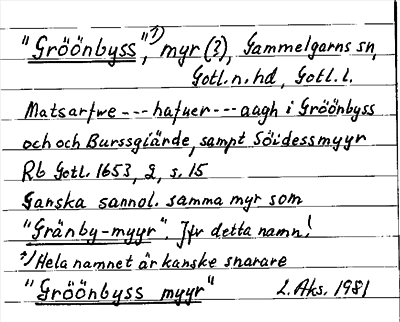 "Gröönbyss",*) myr (?), Gammelgarns sn,
Gotl. n. hd, Gotl. l.
Matsarfwe --- hafuer --- aagh i Gröönbyss
och och Burssgiärde, sampt Söidessmyyr
Rb Gotl. 1653, 2, s. 15
Ganska sannol. samma myr som
"Gränby-myyr". Jfr detta namn!
*) Hela namnet är kanske snarare
"Gröönbyss myyr" L. Aks. 1981